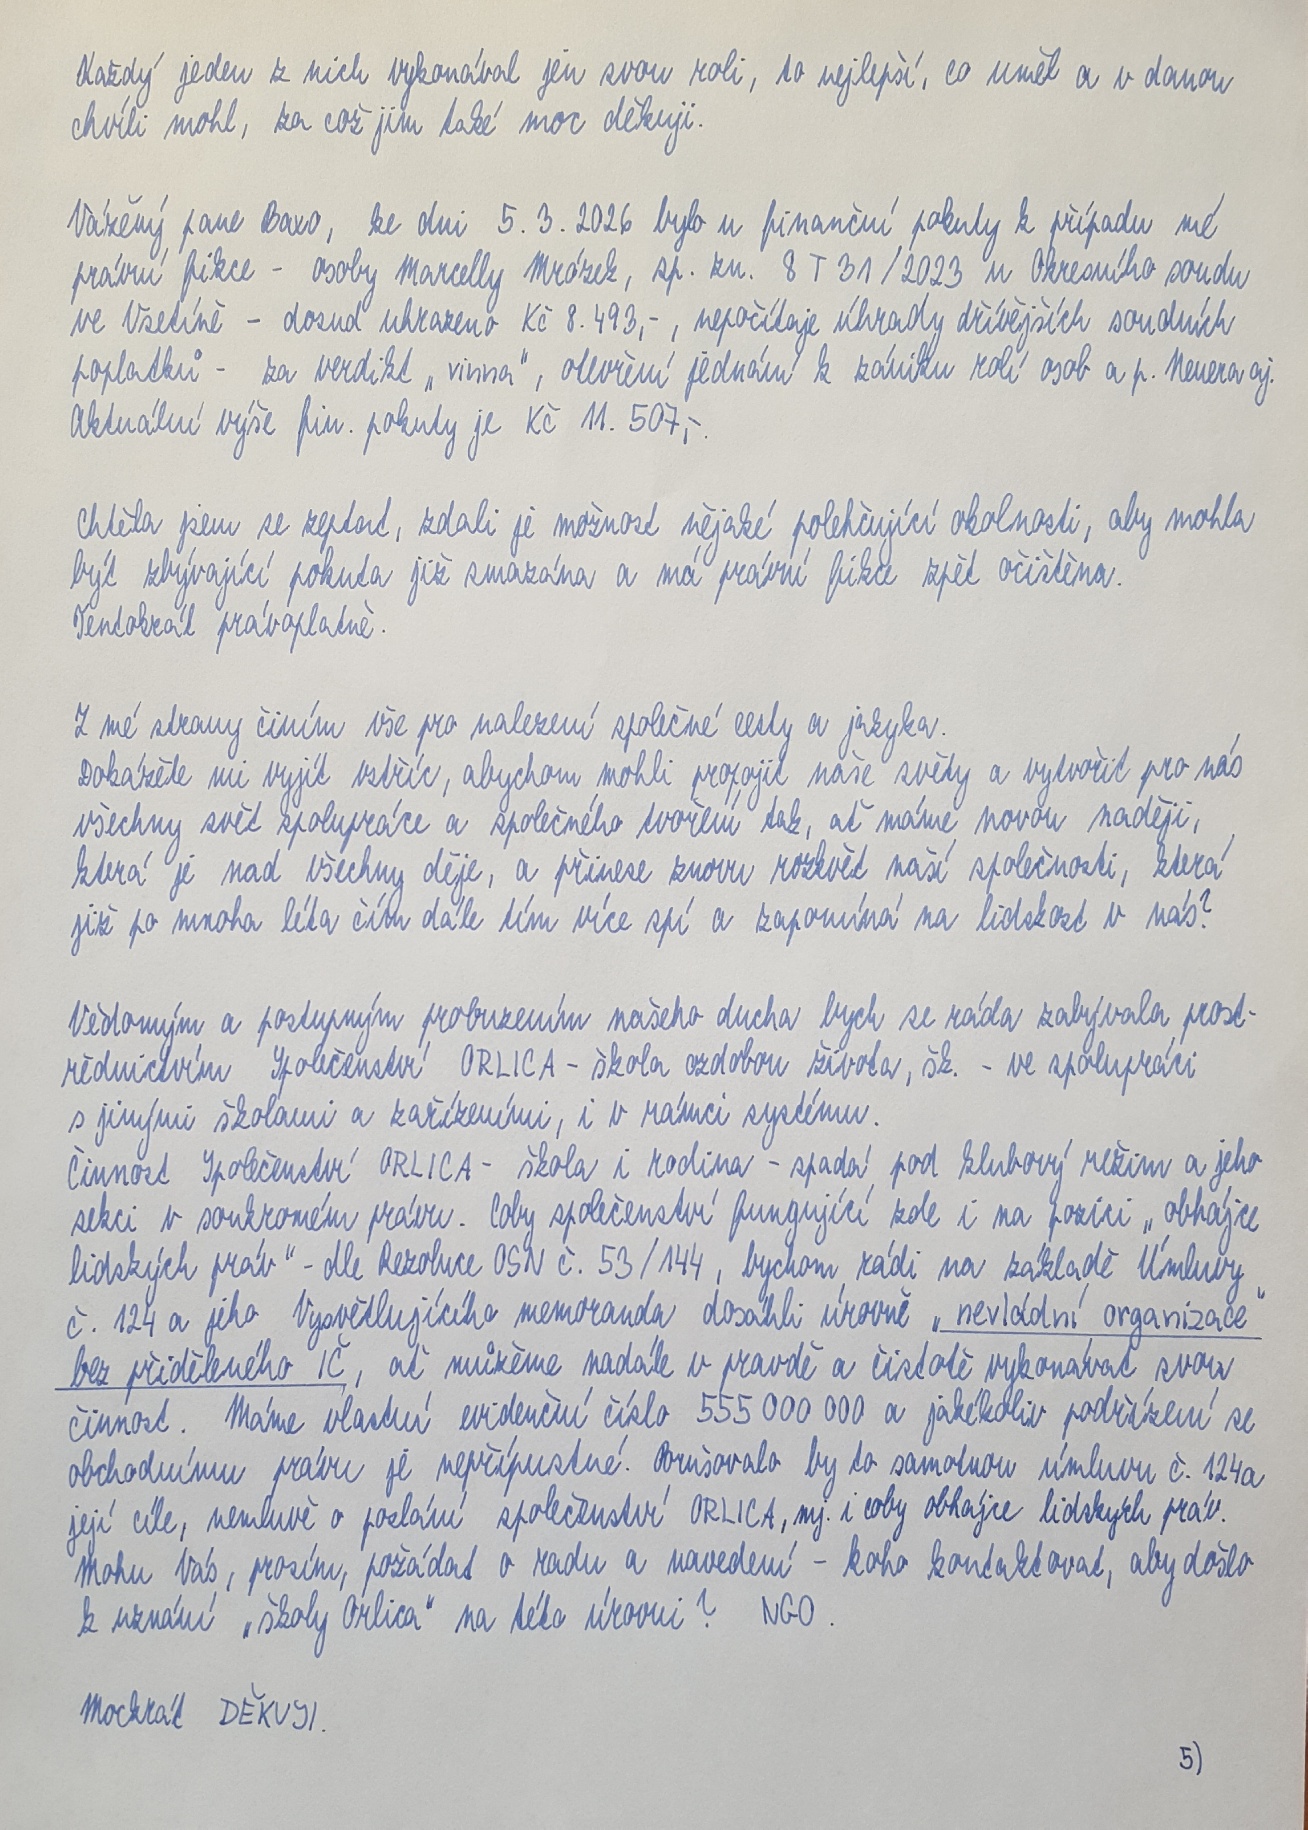 Každý jeden z nich vykonával jen svou roli, to nejlepší, co uměl a v danou
chvíli mohl, za což jim také moc děkuji.
Vážěný pane Baxo, ke dni 5.3.2026 bylo u finanční pokuty k případu mé
právní fikce - osoby Marcelly Mrózek, sp. zn. 8 T 31/2023 u Okresního soudu
ve Vsetíně - dosud uhrazeno Kč 8.493,-, nepočítaje úhrady dřívějších soudních
poplatků - za verdikt „vinna", otevření jednání k zániku rolí osob a p. Nenera aj.
Aktuální výše fin. pokuty je Kč 11.507,-.
Chtěla jsem se zeptat, zdali je možnost nějaké polehčující okolnosti, aby mohla
být zbývající pokuta již smazána a má právní fikce zpět očištěna.
Tentokrát právoplatně.
Z mé strany činím vše pro nalezení společné cesty a jazyka.
Dokážěte mi vyjít vstříc, abychom mohli propojit naše světy a vytvořit pro nás
všechny svět spolupráce a společného tvoření tak, ať máme novou naději,
která je nad všechny děje, a přinese znovu rozkvět naší společnosti, která
již po mnoha léta čím dále tím více spí a zapomíná na lidskost v nás?
Vědomým a postupným probuzením našeho ducha bych se ráda zabývala prost-
řednictvím Společenství ORLICA - škola ozdobou života, šk. - ve spolupráci
s jinými školami a zařízeními, i v rámci systému.
Činnost Společenství ORLICA - škola i rodina - spadá pod klubový režim a jeho
sekci v soukromém právu. Coby společenství fungující zde i na pozici „obhájce
lidských práv" - dle Rezoluce OSN č. 53/144, bychom rádi na základě Úmluvy
č. 124 a jeho Vysvětlujícího memoranda dosáhli úrovně „nevládní organizace"
bez přiděleného IČ, ať můžěme nadále v pravdě a čistotě vykonávat svou
činnost. Máme vlastní evidenční číslo 555 000 000 a jakékoliv podřízení se
obchodnímu právu je nepřípustné. Porušovalo by to samotnou úmluvu č. 124 a
její cíle, nemluvě o poslání společenství ORLICA, mj. i coby obhájce lidských práv.
Mohu Vás, prosím, požádat o radu a navedení - koho kontaktovat, aby došlo
k uznání „školy Orlica" na této úrovni? NGO.
Mockrát DĚKUJI.
5)